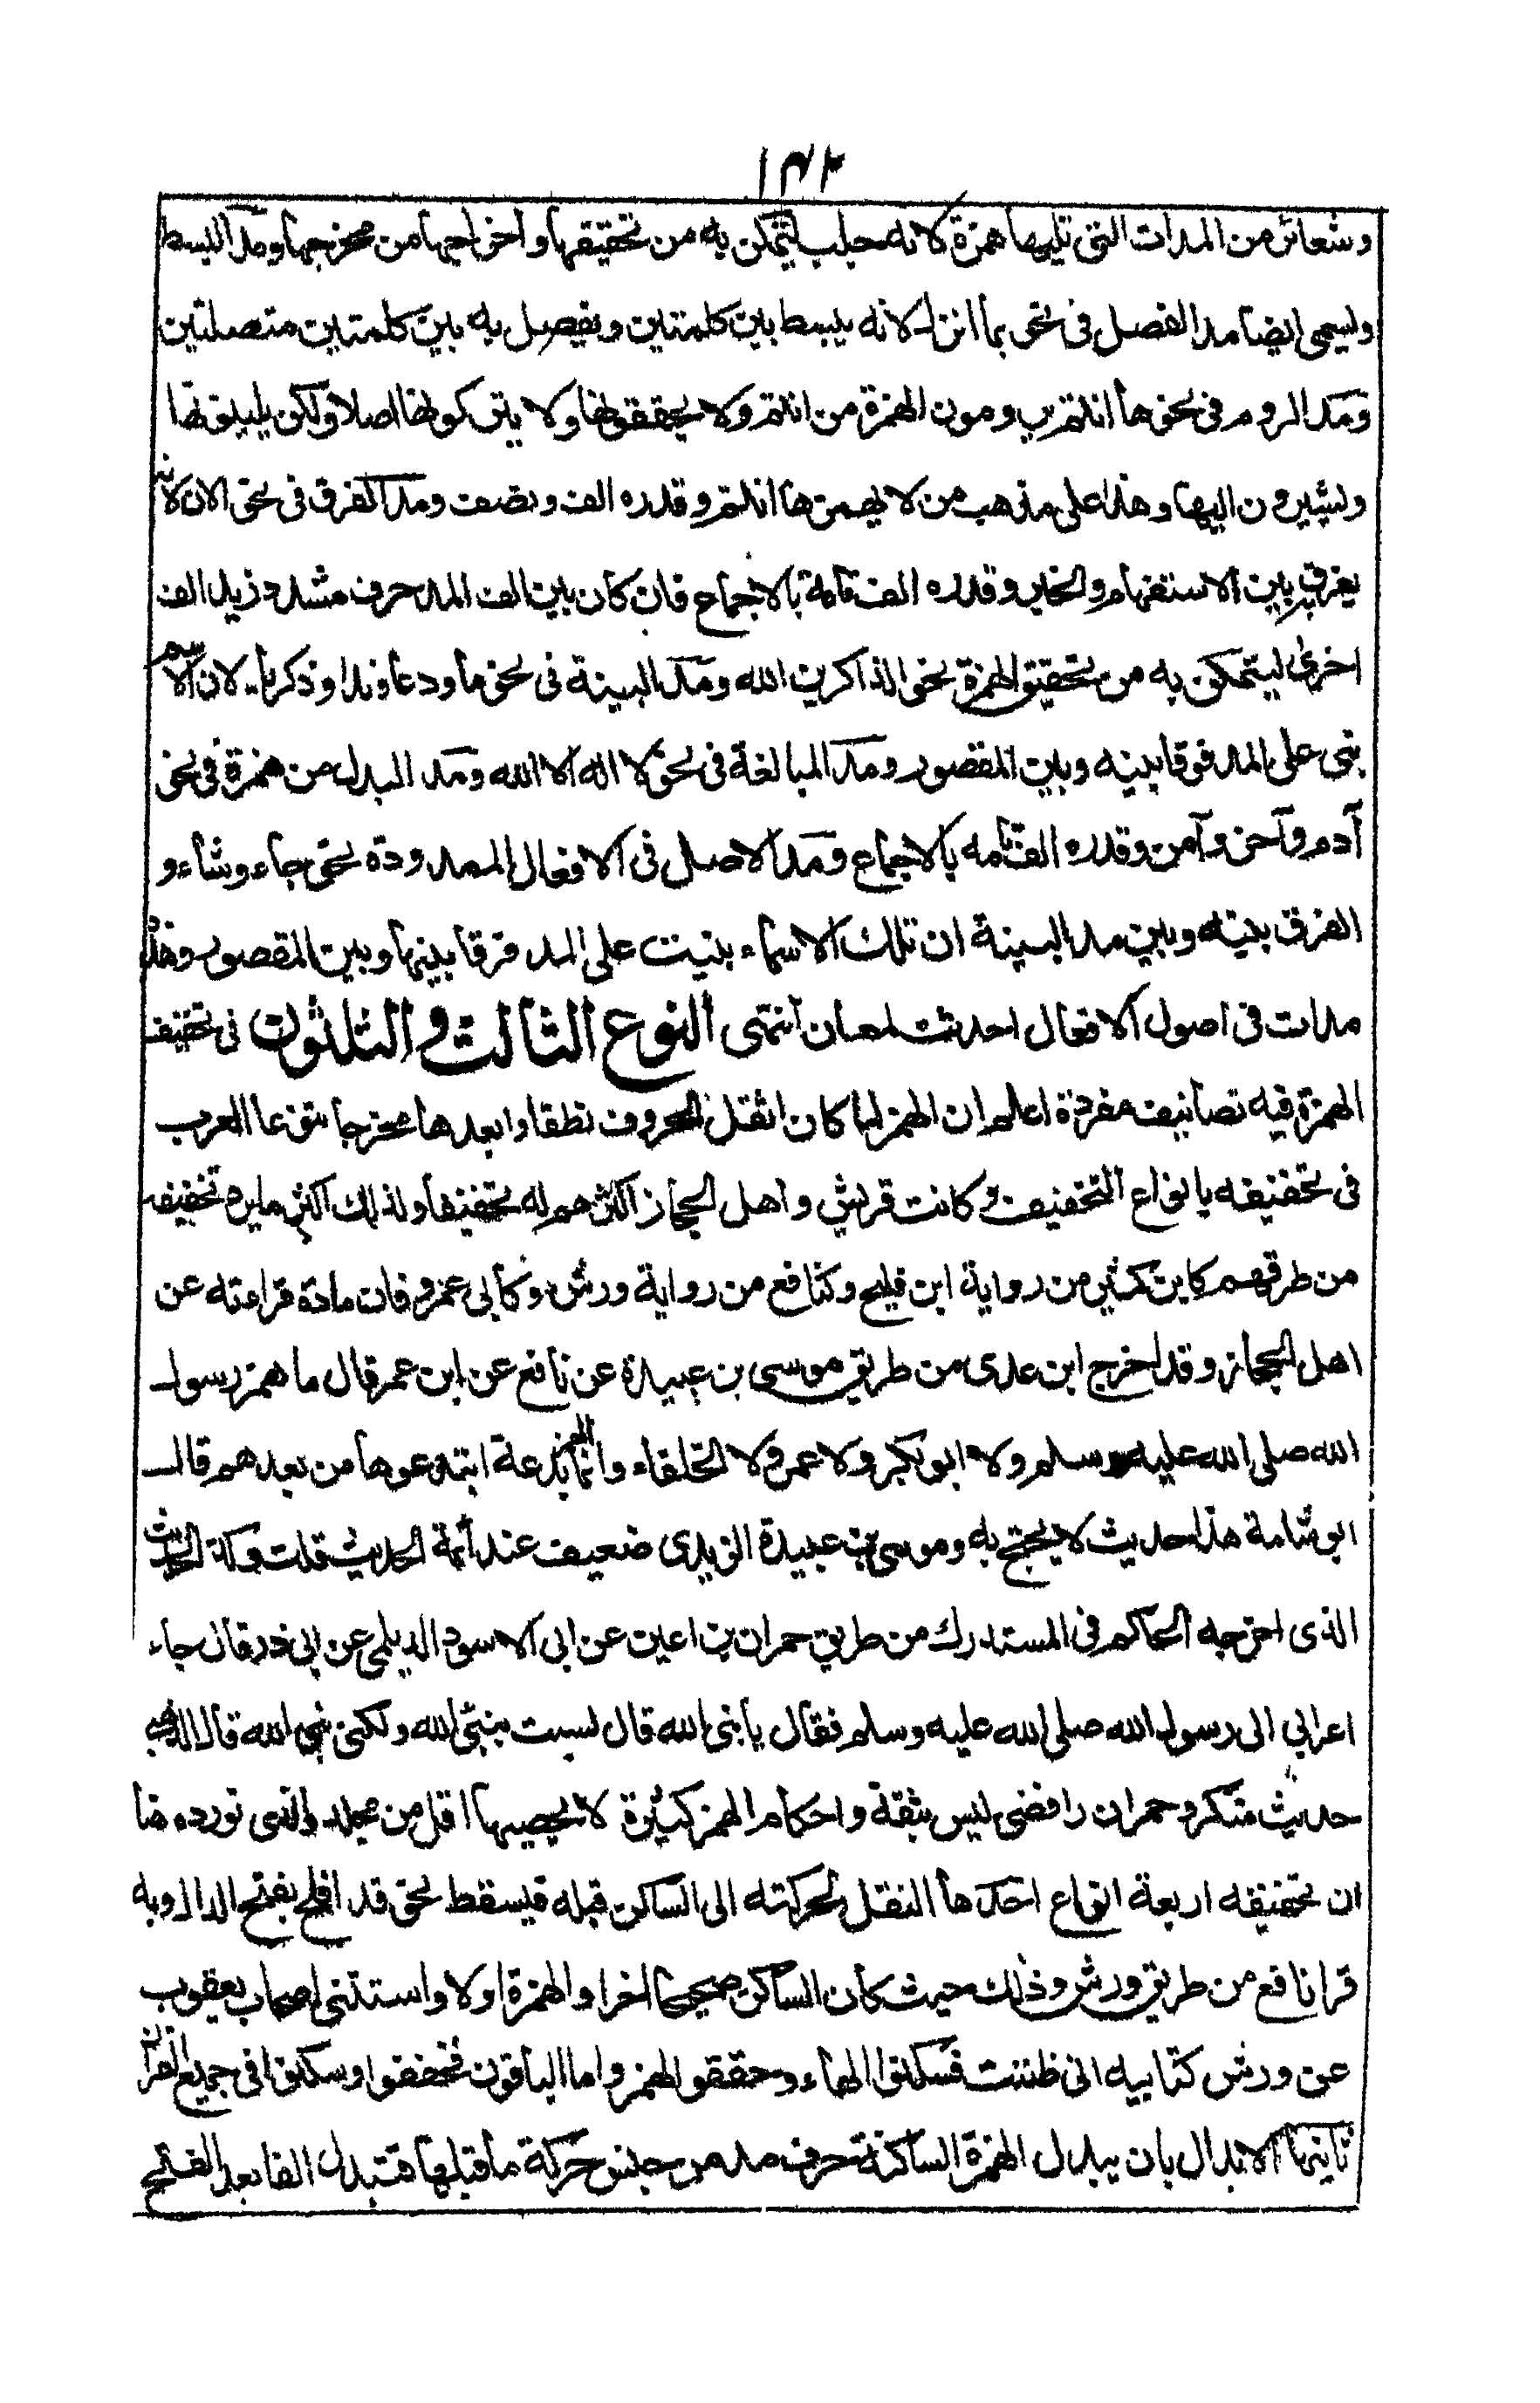 ١٤٢
وشعائر من المدات التى تليها همزة لانه جلب ليتمكن به من تحقيقها واخراجها من مخرجها ومد البسط
وليسمى ايضا مد الفصل فى نحو بما انزل لانه يبسط بين كلمتين ويفصل به بين كلمتين متصلتين
ومد الروم فى نحو ها أنتم يرومون الهمزة من انتم ولا يحققونها ولا يتركونها اصلا ولكن يلينونها
ويشيرون اليها وهذا على مذهب من لا يهمز ها انتم وقدره الف ونصف ومد الفرق فى نحو الان لانه
يفرق به بين الاستفهام والخبر وقدره الف تامة بالاجماع فان كان بين الف المد حرف مشدد زيد الف
اخرى ليتمكن به من تحقيق الهمزة نحو الذاكرين الله ومد البينة فى نحو ماء ودعاء ونداء وذكرياء لان الاسم
بنى على المد فرقا بينه وبين المقصور ومد المبالغة فى نحو لا اله الا الله ومد البدل من همزة فى نحو
آدم وآخر وآمن وقدره الف تامه بالاجماع ومد الاصل فى الافعال الممدودة نحو جاء وشاء و
الفرق بينه وبين مد البينة ان تلك الاسماء بنيت على المد فرقا بينها وبين المقصور وهذه
مدات فى اصول الافعال احدثت لمعان انتهى النوع الثالث والثلثون فى تخفيف
الهمزة فيه تصانيف مفردة اعلم ان الهمز لما كان اثقل الحروف نطقا وابعدها مخرجا تنوعا العرب
فى تخفيفه بانواع التخفيف وكانت قريش واهل الحجاز اكثرهم له تخفيفا ولذلك اكثر ما يرد تخفيفه
من طرقهم كابن كثير من رواية ابن فليح وكنافع من رواية ورش وكأبى عمرو فان مادة قراءته عن
اهل الحجاز وقد اخرج ابن عدى من طريق موسى بن عبيدة عن نافع عن ابن عمر قال ما همز رسول
الله صلى الله عليه وسلم ولا ابو بكر ولا عمر ولا الخلفاء وانما الهمز بدعة ابتدعوها من بعدهم قال
ابو شامة هذا حديث لا يحتج به وموسى بن عبيدة الزيدى ضعيف عند أئمة الحديث قلت وكذا الحديث
الذى اخرجه الحاكم فى المستدرك من طريق حمران بن اعين عن ابى الاسود الديلمى عن ابى ذر قال جاء
اعرابي الى رسول الله صلى الله عليه وسلم فقال يا نبئ الله قال لست بنبئ الله ولكنى نبى الله قال الذهبى
حديث منكر وحمران رافضى ليس بثقة واحكام الهمز كثيرة لا يحصيها اقل من مجلد والذى نورده هنا
ان تخفيفه اربعة انواع احدها النقل لحركته الى الساكن قبله فيسقط نحو قد افلح بفتح الدال وبه
قرا نافع من طريق ورش وذلك حيث كان الساكن صحيحا اخرا والهمزة اولا واستثنى اصحاب يعقوب
عن ورش كتابيه انى ظننت فسكنوا الهاء وحققوا الهمز واما الباقون فخففوا وسكنوا فى جميع القران
ثانيها الابدال بان يبدل الهمزة الساكنة حرف مد من جنس حركة ما قبلها فتبدل الفا بعد الفتح